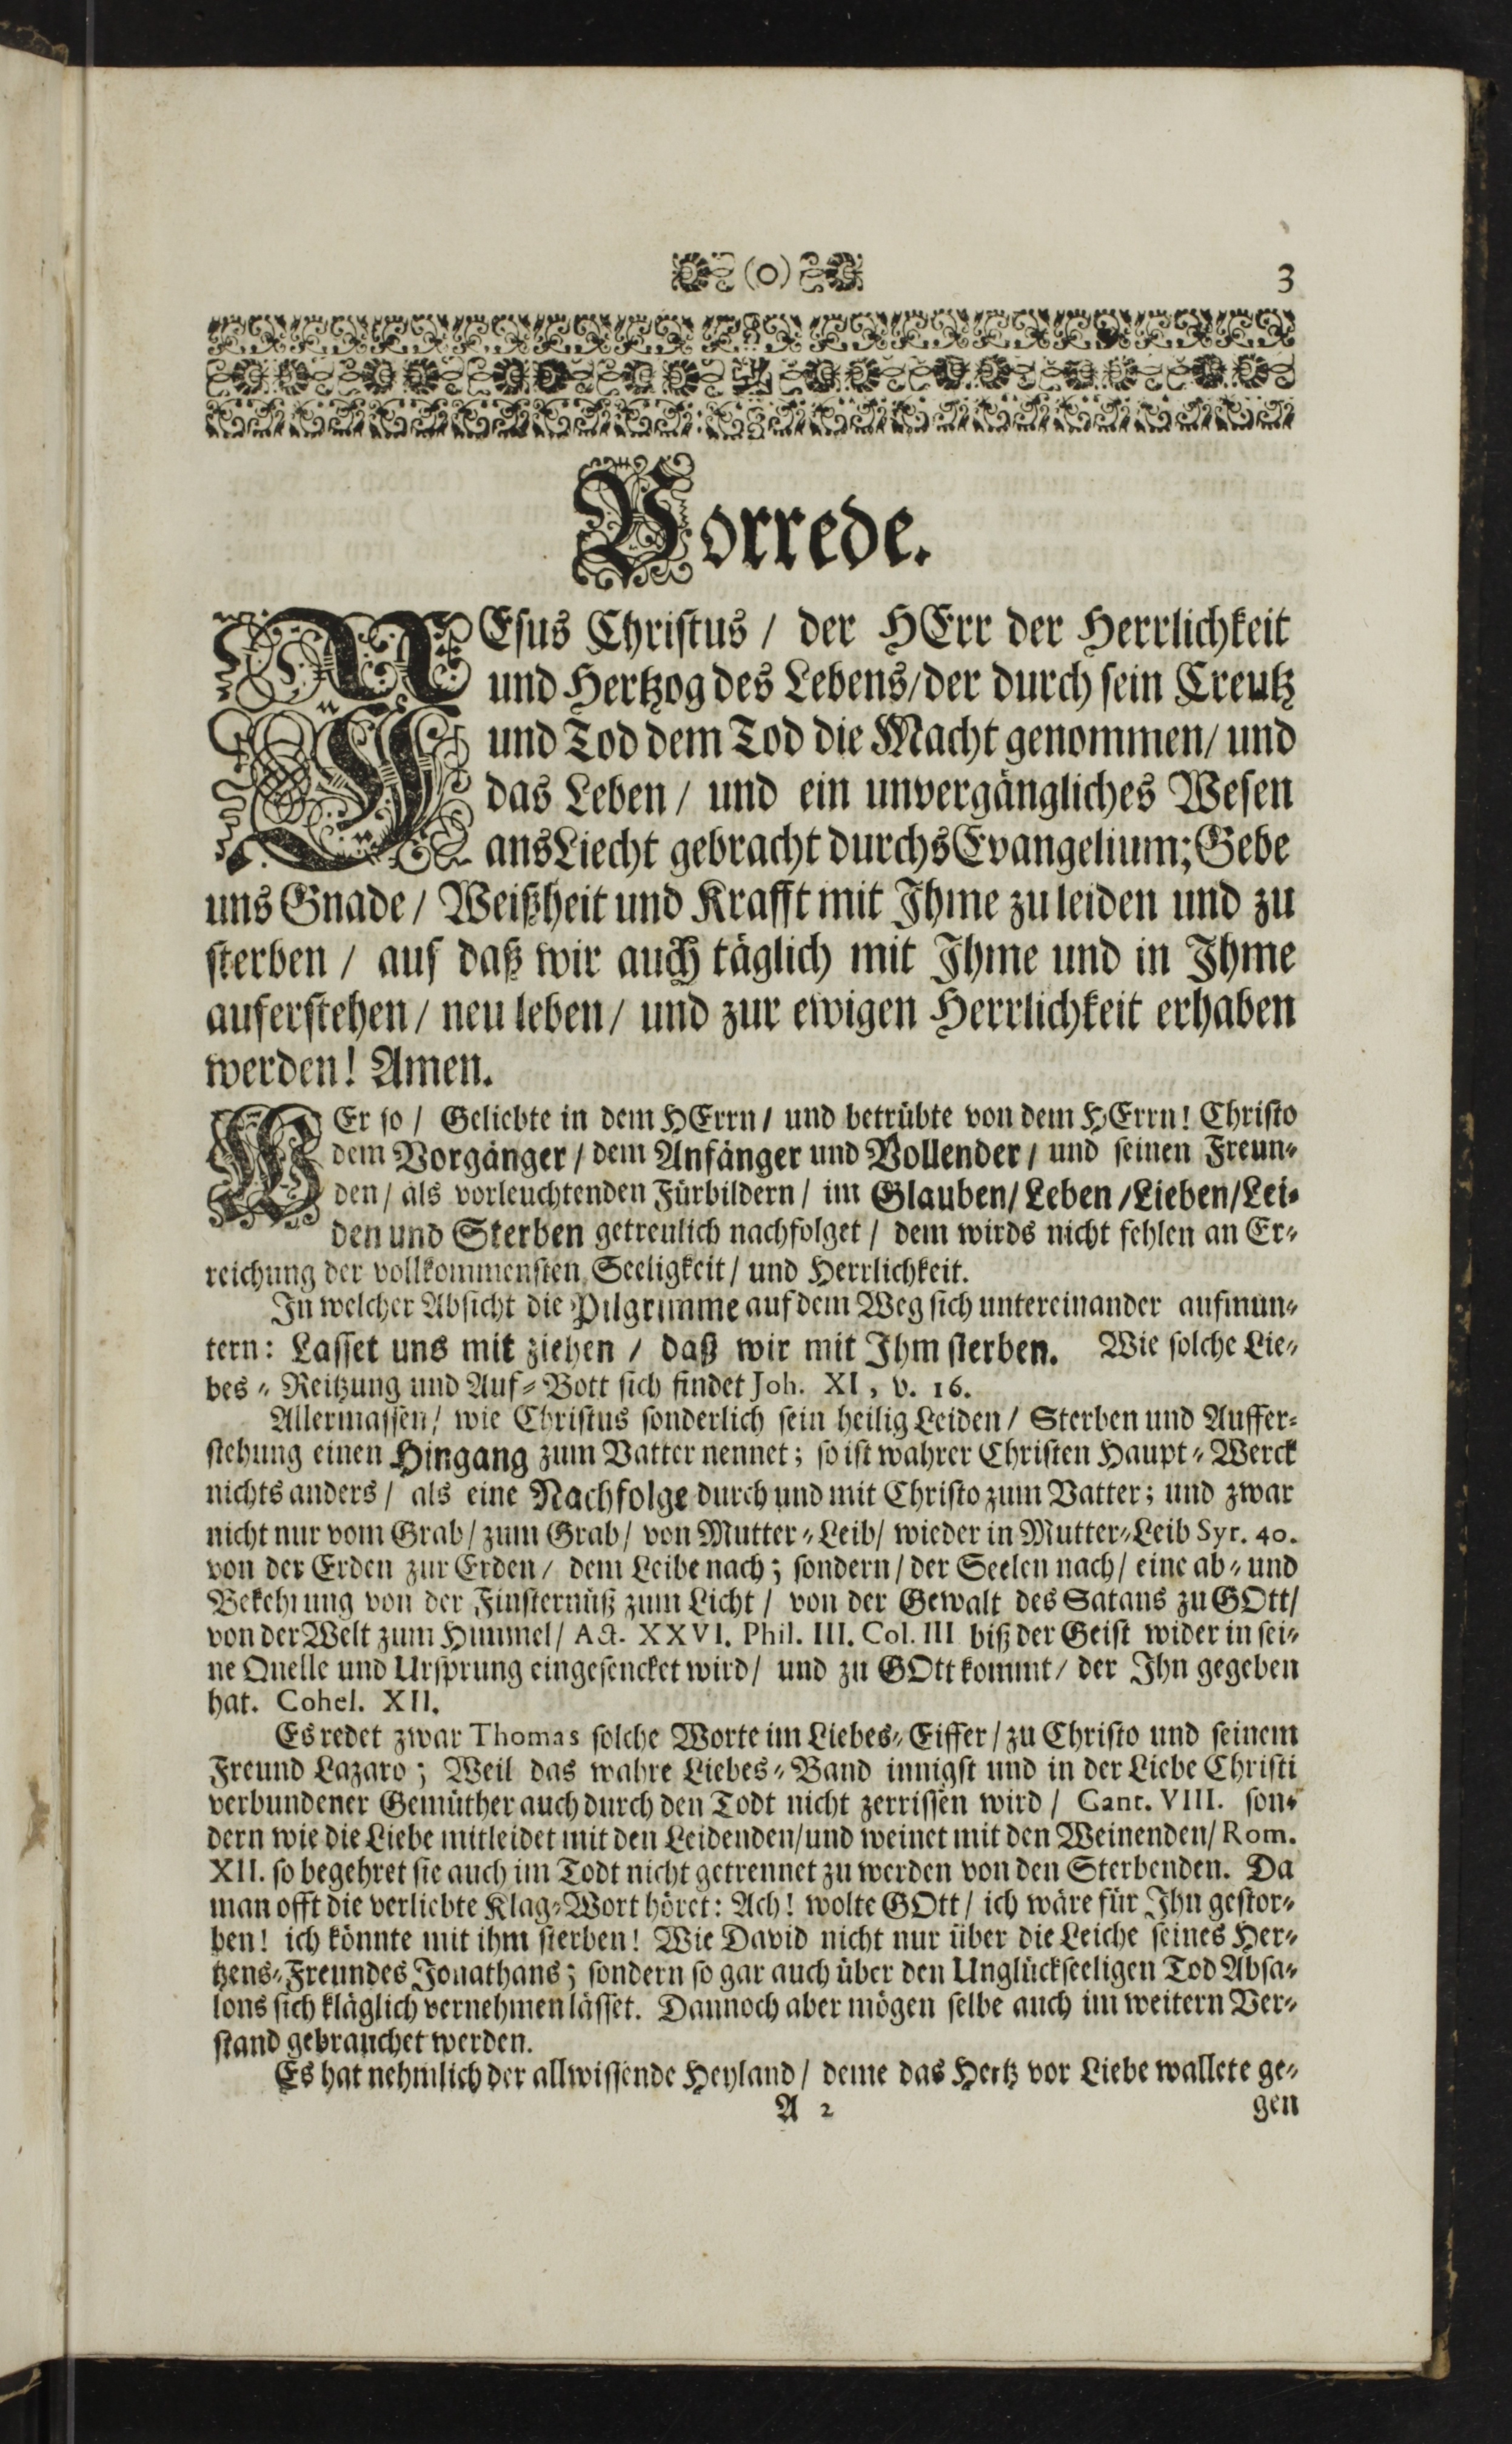 (o) 3
Vorrede.
JEsus Christus / der HErr der Herrlichkeit
und Hertzog des Lebens/der durch sein Creutz
und Tod dem Tod die Macht genommen/ und
das Leben / und ein unvergängliches Wesen
ans Liecht gebracht durchs Evangelium; Gebe
uns Gnade / Weißheit und Krafft mit Jhme zu leiden und zu
sterben / auf daß wir auch täglich mit Jhme und in Jhme
auferstehen / neu leben / und zur ewigen Herrlichkeit erhaben
werden! Amen.
WEr so / Geliebte in dem HErrn / und betrübte von dem HErrn! Christo
dem Vorgänger / dem Anfänger und Vollender / und seinen Freun-
den / als vorleuchtenden Fürbildern / im Glauben/ Leben /Lieben/Lei-
den und Sterben getreulich nachfolget / dem wirds nicht fehlen an Er-
reichung der vollkommensten Seeligkeit / und Herrlichkeit.
Jn welcher Absicht die Pilgrimme auf dem Weg sich untereinander aufmun-
tern: Lasset uns mit ziehen / daß wir mit Jhm sterben. Wie solche Lie-
bes-Reitzung und Auf-Bott sich findet Joh. XI, v. 16.
Allermassen / wie Christus sonderlich sein heilig Leiden / Sterben und Auffer-
stehung einen Hingang zum Vatter nennet; so ist wahrer Christen Haupt-Werck
nichts anders / als eine Nachfolge durch und mit Christo zum Vatter; und zwar
nicht nur vom Grab / zum Grab / von Mutter-Leib / wieder in Mutter-Leib Syr. 40.
von der Erden zur Erden / dem Leibe nach; sondern / der Seelen nach / eine ab- und
Bekehrung von der Finsternüß zum Licht / von der Gewalt des Satans zu GOtt/
von der Welt zum Himmel / Act. XXVI. Phil. III. Col. III biß der Geist wider in sei-
ne Quelle und Ursprung eingesencket wird / und zu GOtt kommt / der Jhn gegeben
hat. Cohel. XII.
Es redet zwar Thomas solche Worte im Liebes-Eiffer / zu Christo und seinem
Freund Lazaro; Weil das wahre Liebes-Band innigst und in der Liebe Christi
verbundener Gemüther auch durch den Todt nicht zerrissen wird / Cant. VIII. son-
dern wie die Liebe mitleidet mit den Leidenden/und weinet mit den Weinenden/ Rom.
XII. so begehret sie auch im Todt nicht getrennet zu werden von den Sterbenden. Da
man offt die verliebte Klag-Wort höret: Ach! wolte GOtt / ich wäre für Jhn gestor-
ben! ich könnte mit ihm sterben! Wie David nicht nur über die Leiche seines Her-
tzens-Freundes Jonathans; sondern so gar auch über den Unglückseeligen Tod Absa-
lons sich kläglich vernehmen lässet. Dannoch aber mögen selbe auch im weitern Ver-
stand gebrauchet werden.
Es hat nehmlich der allwissende Heyland / deme das Hertz vor Liebe wallete ge-
A 2 gen